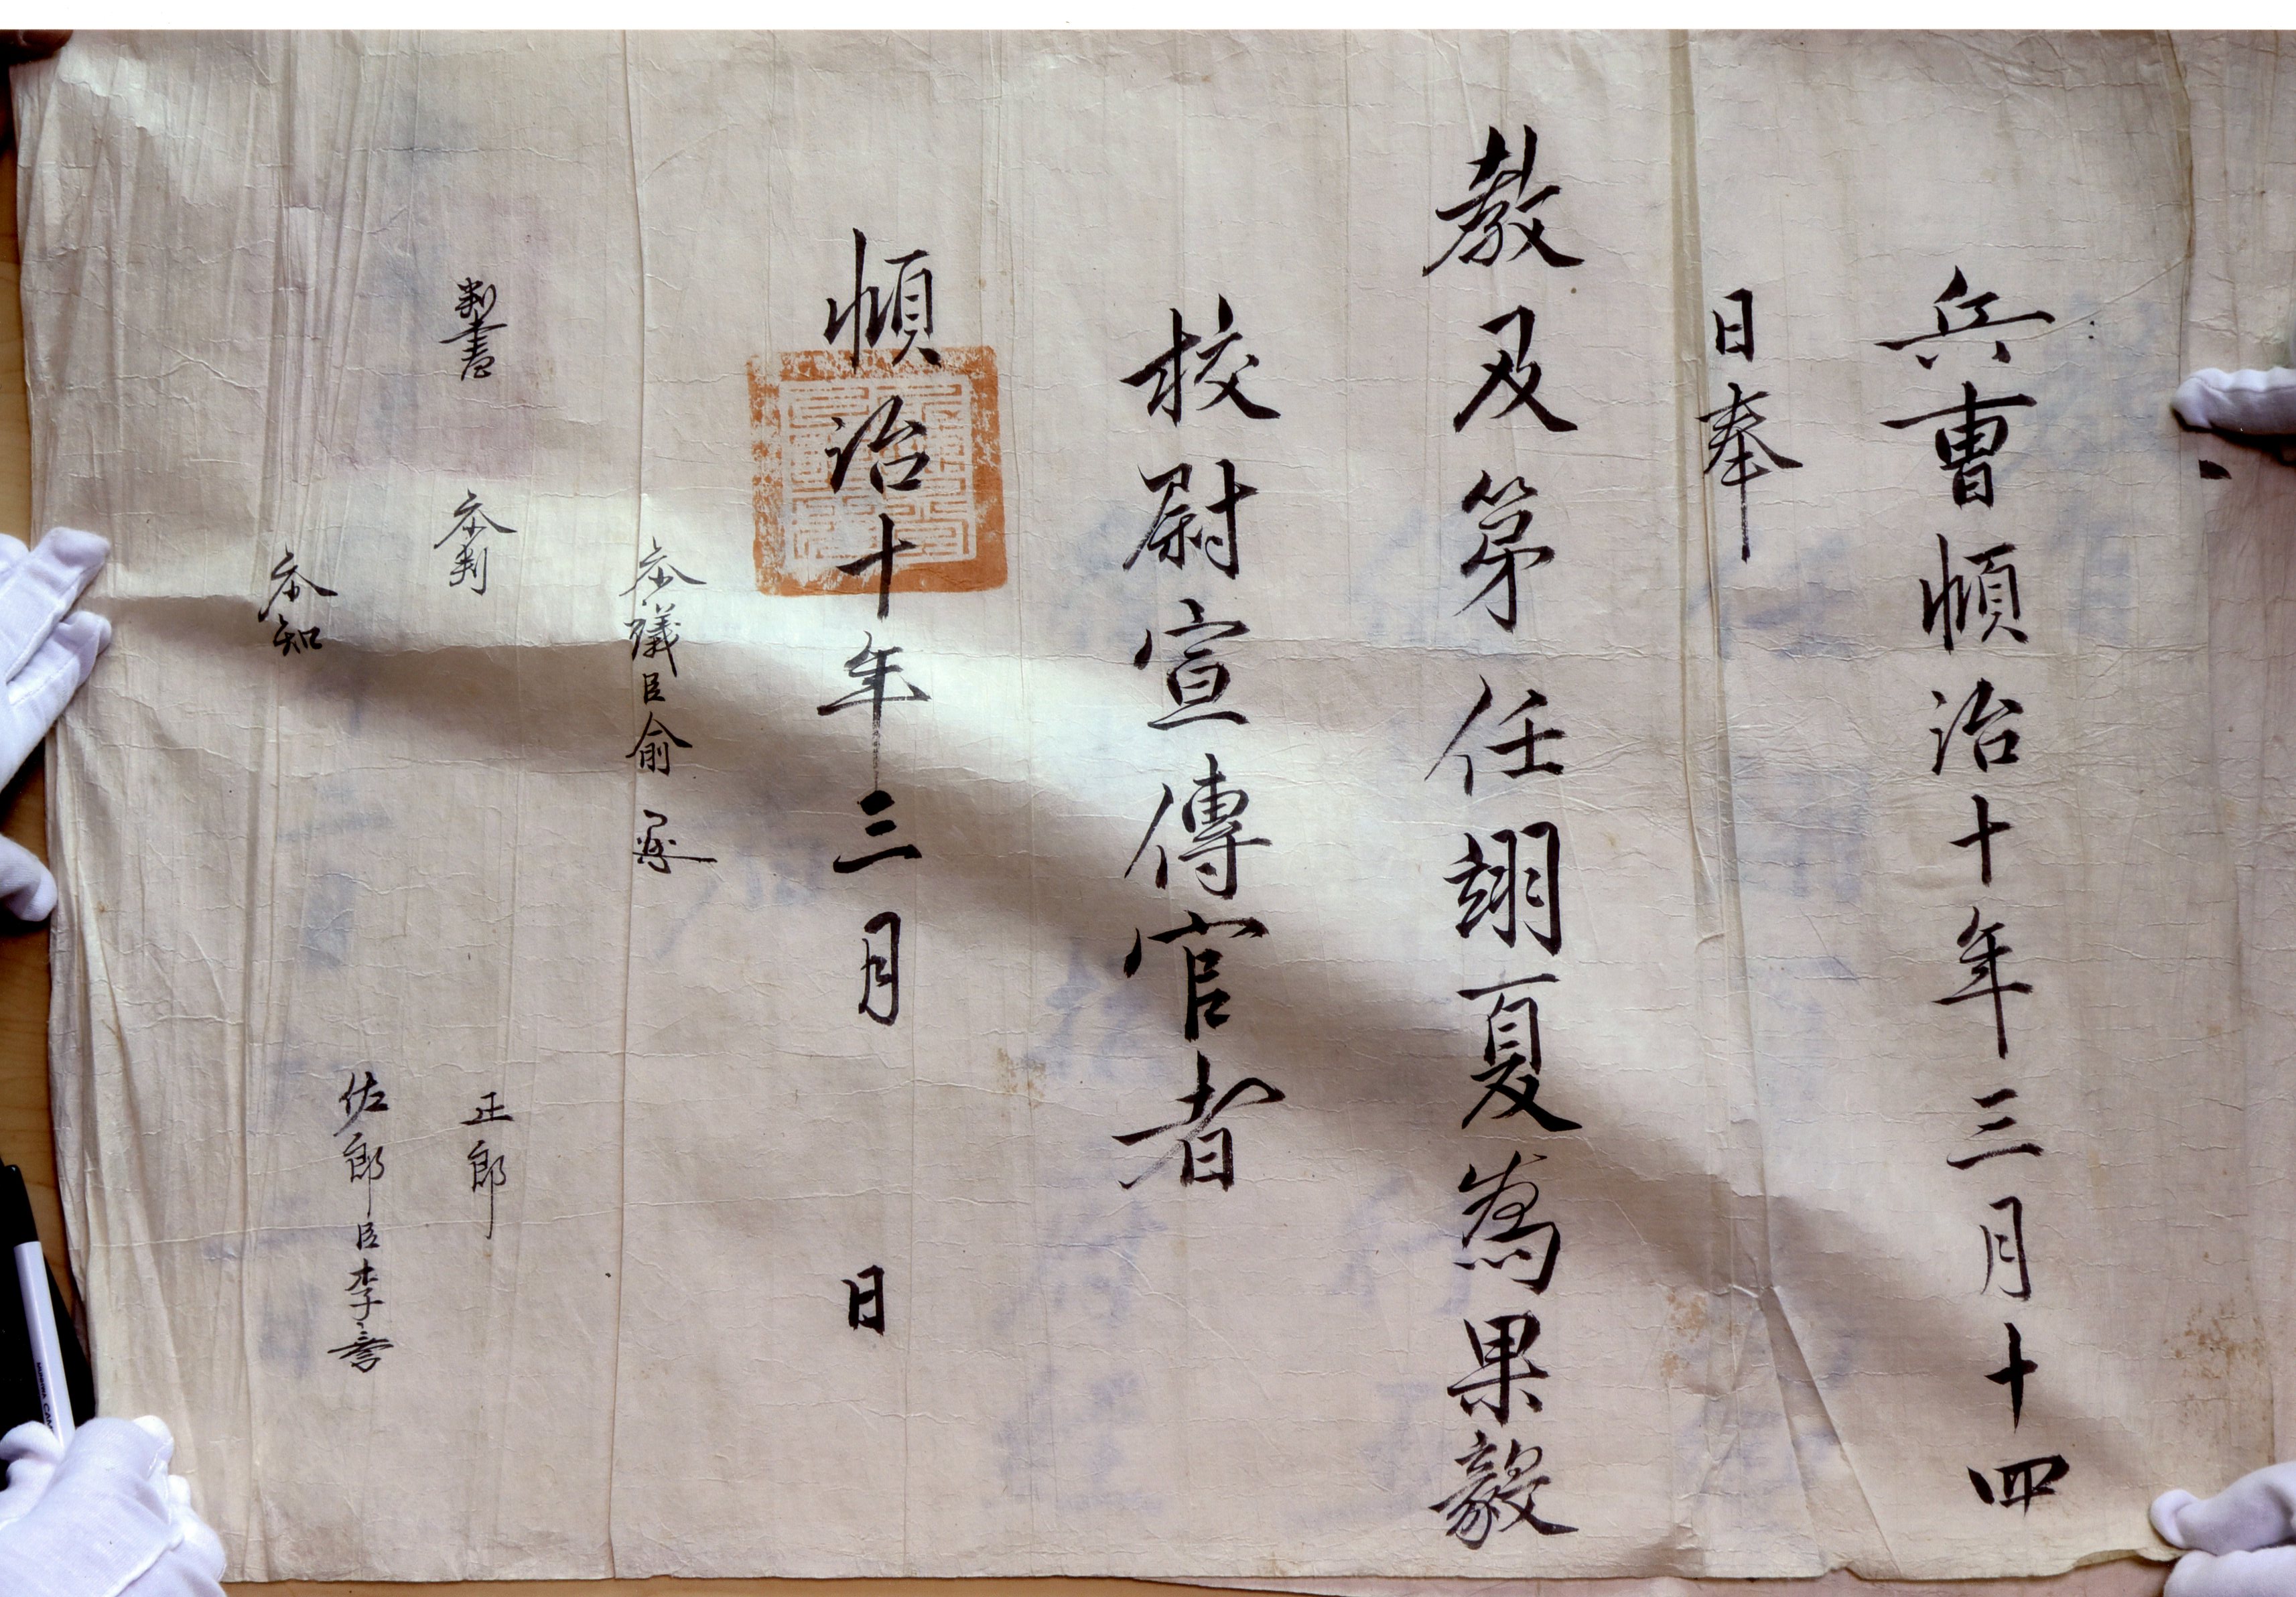 兵曺順治十年三月十四
日奉
教及第任翊夏爲果毅
校尉宣傳官者
順治十年三月 日
叅議臣俞
判書 叅判 正郎
佐郎臣李
叅知